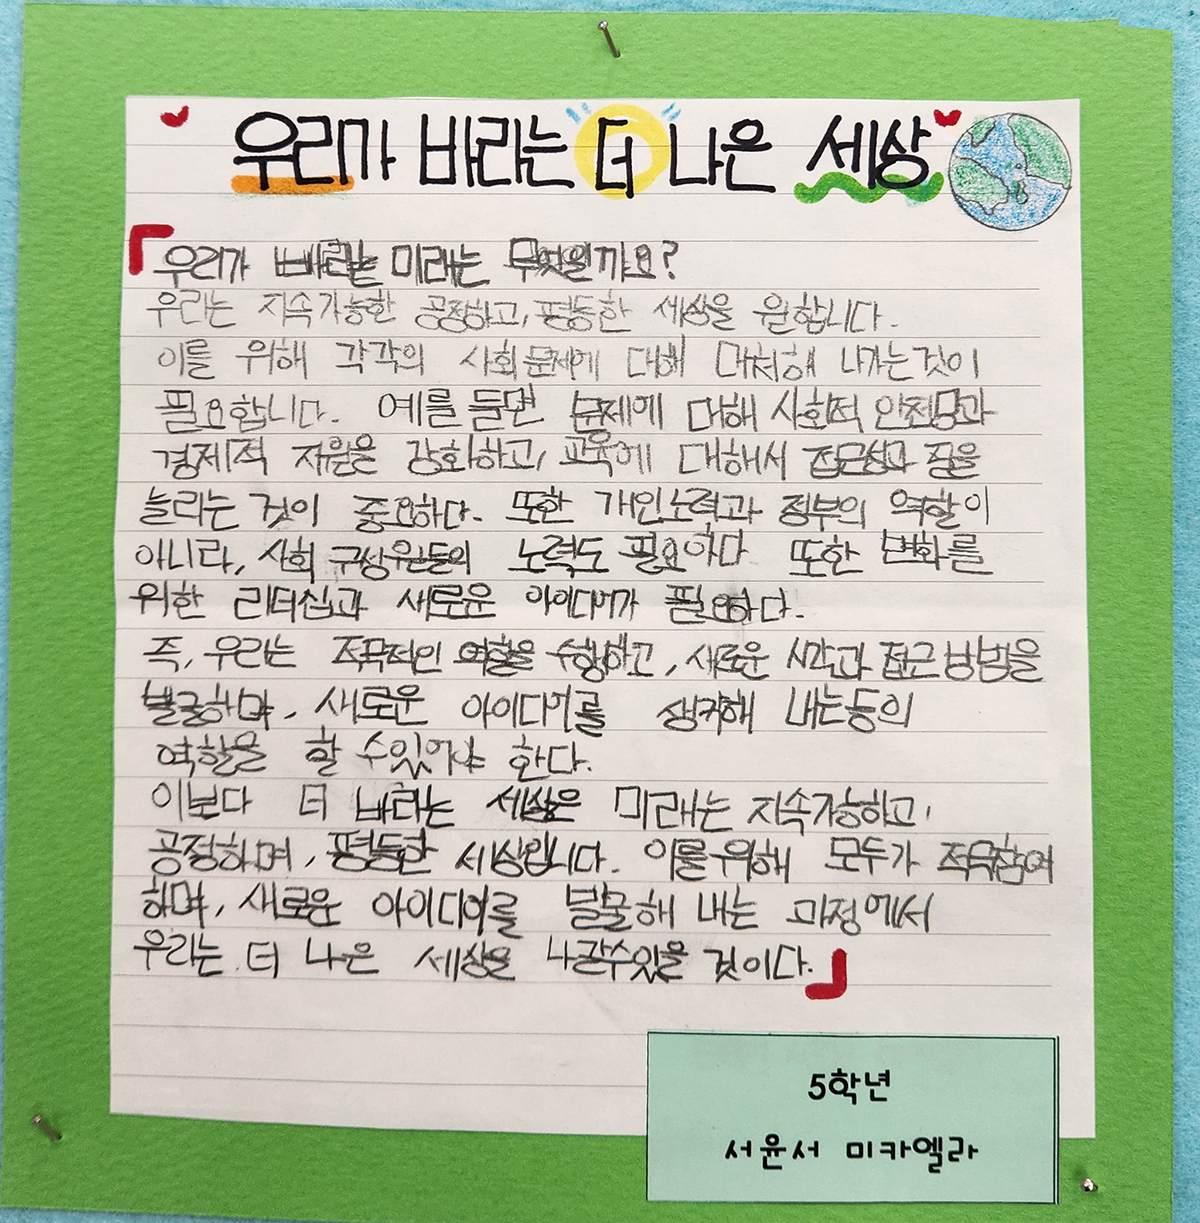 우리가 바라는 더 나은 세상
「우리가 빠라는 미래는 무엇일까요?
우리는 지속가능한 공정하고, 평등한 세상을 원합니다.
이를 위해 각각의 사회문제에 대해 대처해 나가는것이
필요합니다. 예를 들면 문제에 대해 사회적 안전망과
경제적 자원을 강화하고, 교육에 대해서 접근성과 질을
늘리는 것이 중요하다. 또한 개인노력과 정부의 역할이
아니라, 사회 구성원들의 노력도 필요하다 또한 변화를
위한 리더십과 새로운 아이디어가 필요하다.
즉, 우리는 적극적인 역할을 수행하고, 새로운 시각과 접근방법을
발굴하며, 새로운 아이디어를 생각해 내는등의
역할을 할 수있어야 한다.
이보다 더 바라는 세상은 미래는 지속가능하고,
공정하며, 평등한 세상입니다. 이를위해 모두가 적극참여
하며, 새로운 아이디어를 발굴해 내는 과정에서
우리는 더 나은 세상을 나갈수있을 것이다.」
5학년
서윤서 미카엘라